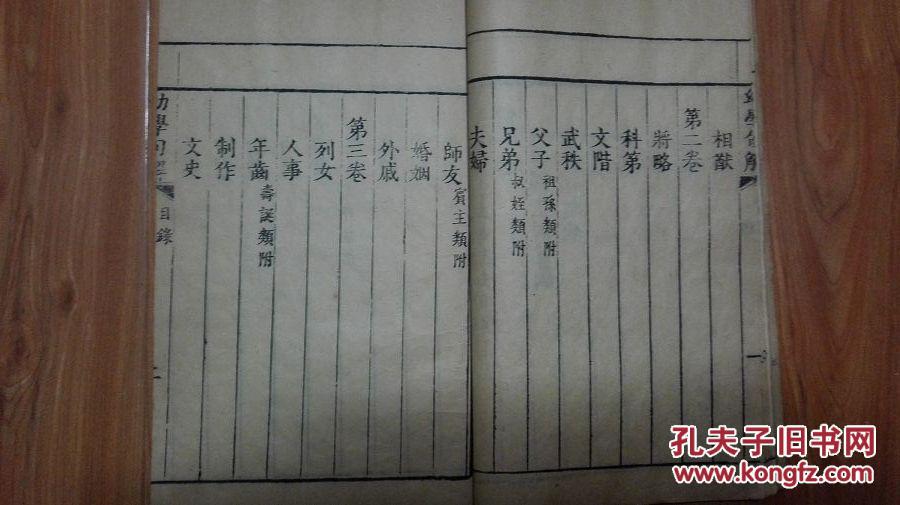 幼學句解 一
相猷
第二卷
將略
科第
文階
武秩
父子 祖孫類附
兄弟 叔姪類附
夫婦
師友 賓主類附
婚姻
外戚
第三卷
列女
人事
年齒 壽誕類附
制作
文史
幼學句解 目錄 二
孔夫子旧书网
www.kongfz.com